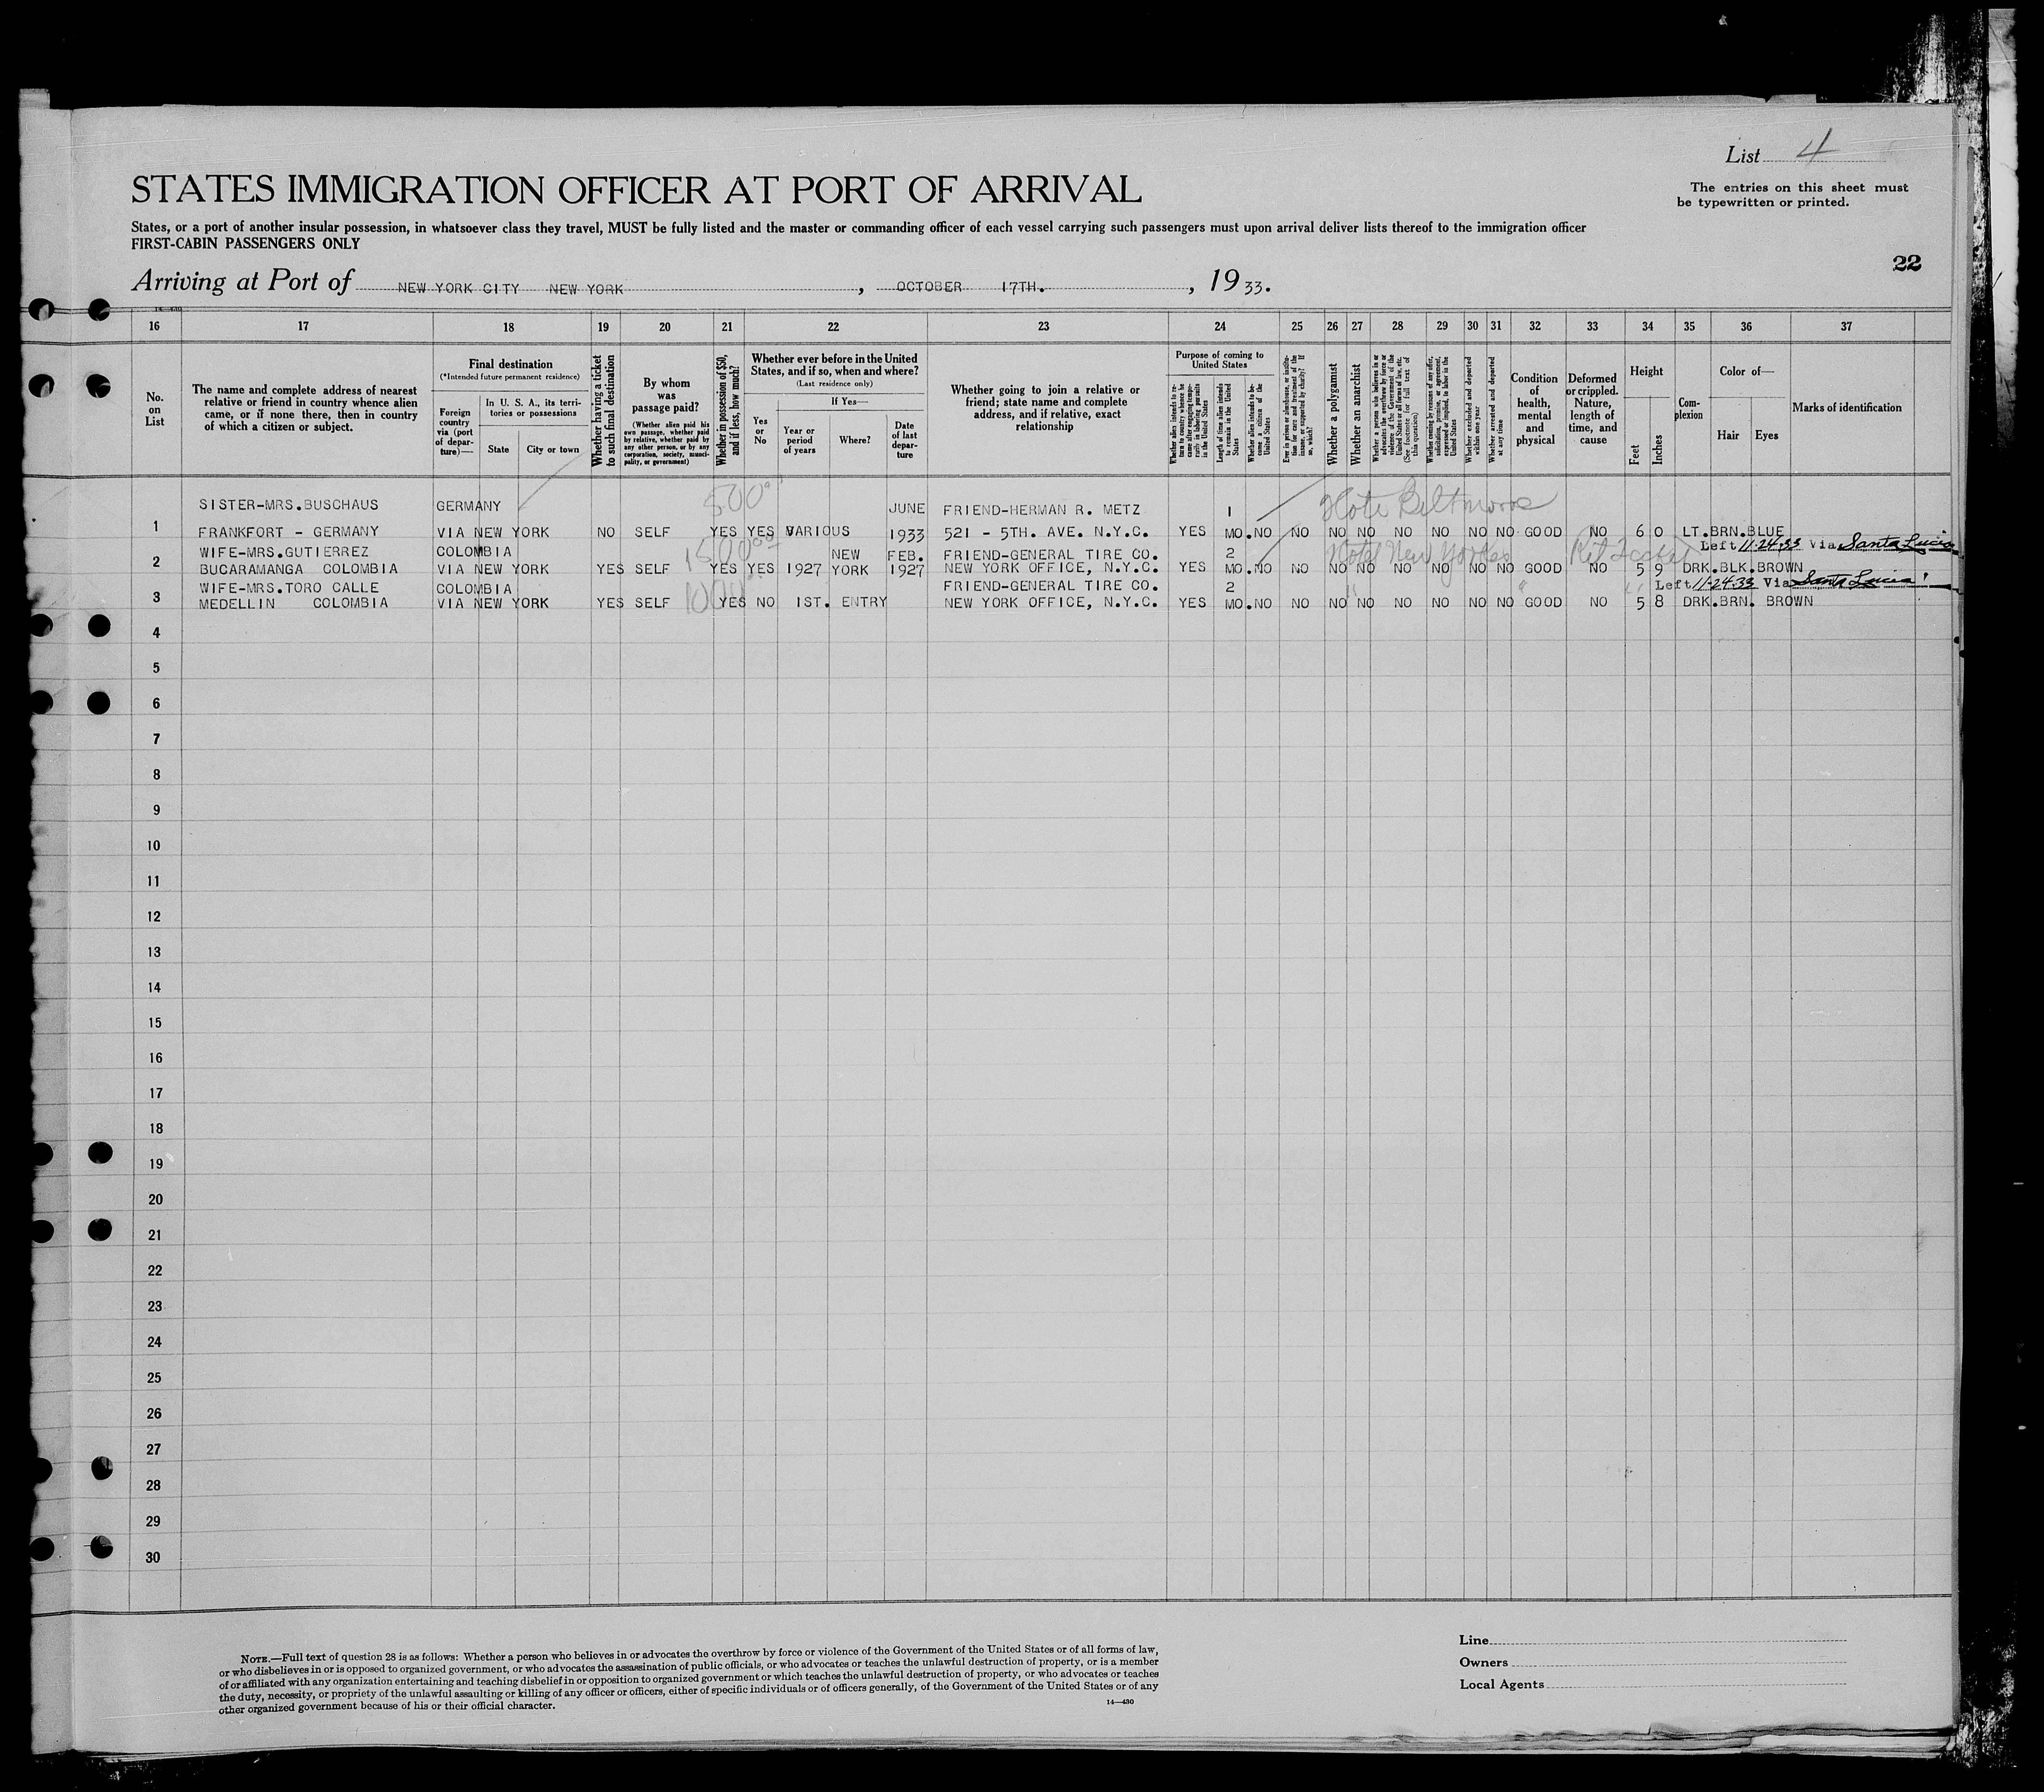 List 4
STATES IMMIGRATION OFFICER AT PORT OF ARRIVAL
The entries on this sheet must
be typewritten or printed.
States, or a port of another insular possession, in whatsoever class they travel, MUST be fully listed and the master or commanding officer of each vessel carrying such passengers must upon arrival deliver lists thereof to the immigration officer
FIRST-CABIN PASSENGERS ONLY
22
Arriving at Port of NEW YORK CITY NEW YORK, OCTOBER 17TH., 1933.
16 17 18 19 20 21 22 23 24 25 26 27 28 29 30 31 32 33 34 35 36 37
No. on List
The name and complete address of nearest relative or friend in country whence alien came, or if none there, then in country of which a citizen or subject.
Final destination
(*Intended future permanent residence)
Foreign country via (port of departure)—
In U. S. A., its territories or possessions
State
City or town
Whether having a ticket to such final destination
By whom was passage paid?
(Whether alien paid his own passage, whether paid by relative, whether paid by any other person, or by any corporation, society, municipality, or government)
Whether in possession of $50, and if less, how much?
Whether ever before in the United States, and if so, when and where?
(Last residence only)
Yes or No
If Yes—
Year or period of years
Where?
Date of last departure
Whether going to join a relative or friend; state name and complete address, and if relative, exact relationship
Purpose of coming to United States
Whether alien intends to return to country whence he came after engaging temporarily in laboring pursuits in the United States
Length of time alien intends to remain in the United States
Whether alien intends to become a citizen of the United States
Ever in prison or almshouse, or institution for care and treatment of the insane, or supported by charity? If so, which?
Whether a polygamist
Whether an anarchist
Whether a person who believes in or advocates the overthrow by force or violence of the Government of the United States or all forms of law, etc. (See footnote for full text of this question)
Whether coming by reason of any offer, solicitation, promise, or agreement, expressed or implied, to labor in the United States
Whether excluded and deported within one year
Whether arrested and deported at any time
Condition of health, mental and physical
Deformed or crippled. Nature, length of time, and cause
Height
Feet
Inches
Complexion
Color of—
Hair
Eyes
Marks of identification
SISTER-MRS.BUSCHAUS GERMANY 500 JUNE FRIEND-HERMAN R. METZ 1 Hote Biltmore
1 FRANKFORT - GERMANY VIA NEW YORK NO SELF YES YES VARIOUS 1933 521 - 5TH. AVE. N.Y.C. YES MO. NO NO NO NO NO NO NO NO GOOD NO 6 0 LT.BRN.BLUE
WIFE-MRS.GUTIERREZ COLOMBIA 1500 NEW FEB. FRIEND-GENERAL TIRE CO. 2 Hotel New Yorker Left 11-24-33 Via Santa Lucia
2 BUCARAMANGA COLOMBIA VIA NEW YORK YES SELF YES YES 1927 YORK 1927 NEW YORK OFFICE, N.Y.C. YES MO. NO NO NO NO NO NO NO NO GOOD NO 5 9 DRK.BLK.BROWN
WIFE-MRS.TORO CALLE COLOMBIA 1000 FRIEND-GENERAL TIRE CO. 2 Left 11-24-33 Via Santa Lucia
3 MEDELLIN COLOMBIA VIA NEW YORK YES SELF YES NO 1ST. ENTRY NEW YORK OFFICE, N.Y.C. YES MO. NO NO NO NO NO NO NO NO GOOD NO 5 8 DRK.BRN. BROWN
4
5
6
7
8
9
10
11
12
13
14
15
16
17
18
19
20
21
22
23
24
25
26
27
28
29
30
NOTE.—Full text of question 28 is as follows: Whether a person who believes in or advocates the overthrow by force or violence of the Government of the United States or of all forms of law,
or who disbelieves in or is opposed to organized government, or who advocates the assassination of public officials, or who advocates or teaches the unlawful destruction of property, or is a member
of or affiliated with any organization entertaining and teaching disbelief in or opposition to organized government or which teaches the unlawful destruction of property, or who advocates or teaches
the duty, necessity, or propriety of the unlawful assaulting or killing of any officer or officers, either of specific individuals or of officers generally, of the Government of the United States or of any
other organized government because of his or their official character.
14—430
Line
Owners
Local Agents